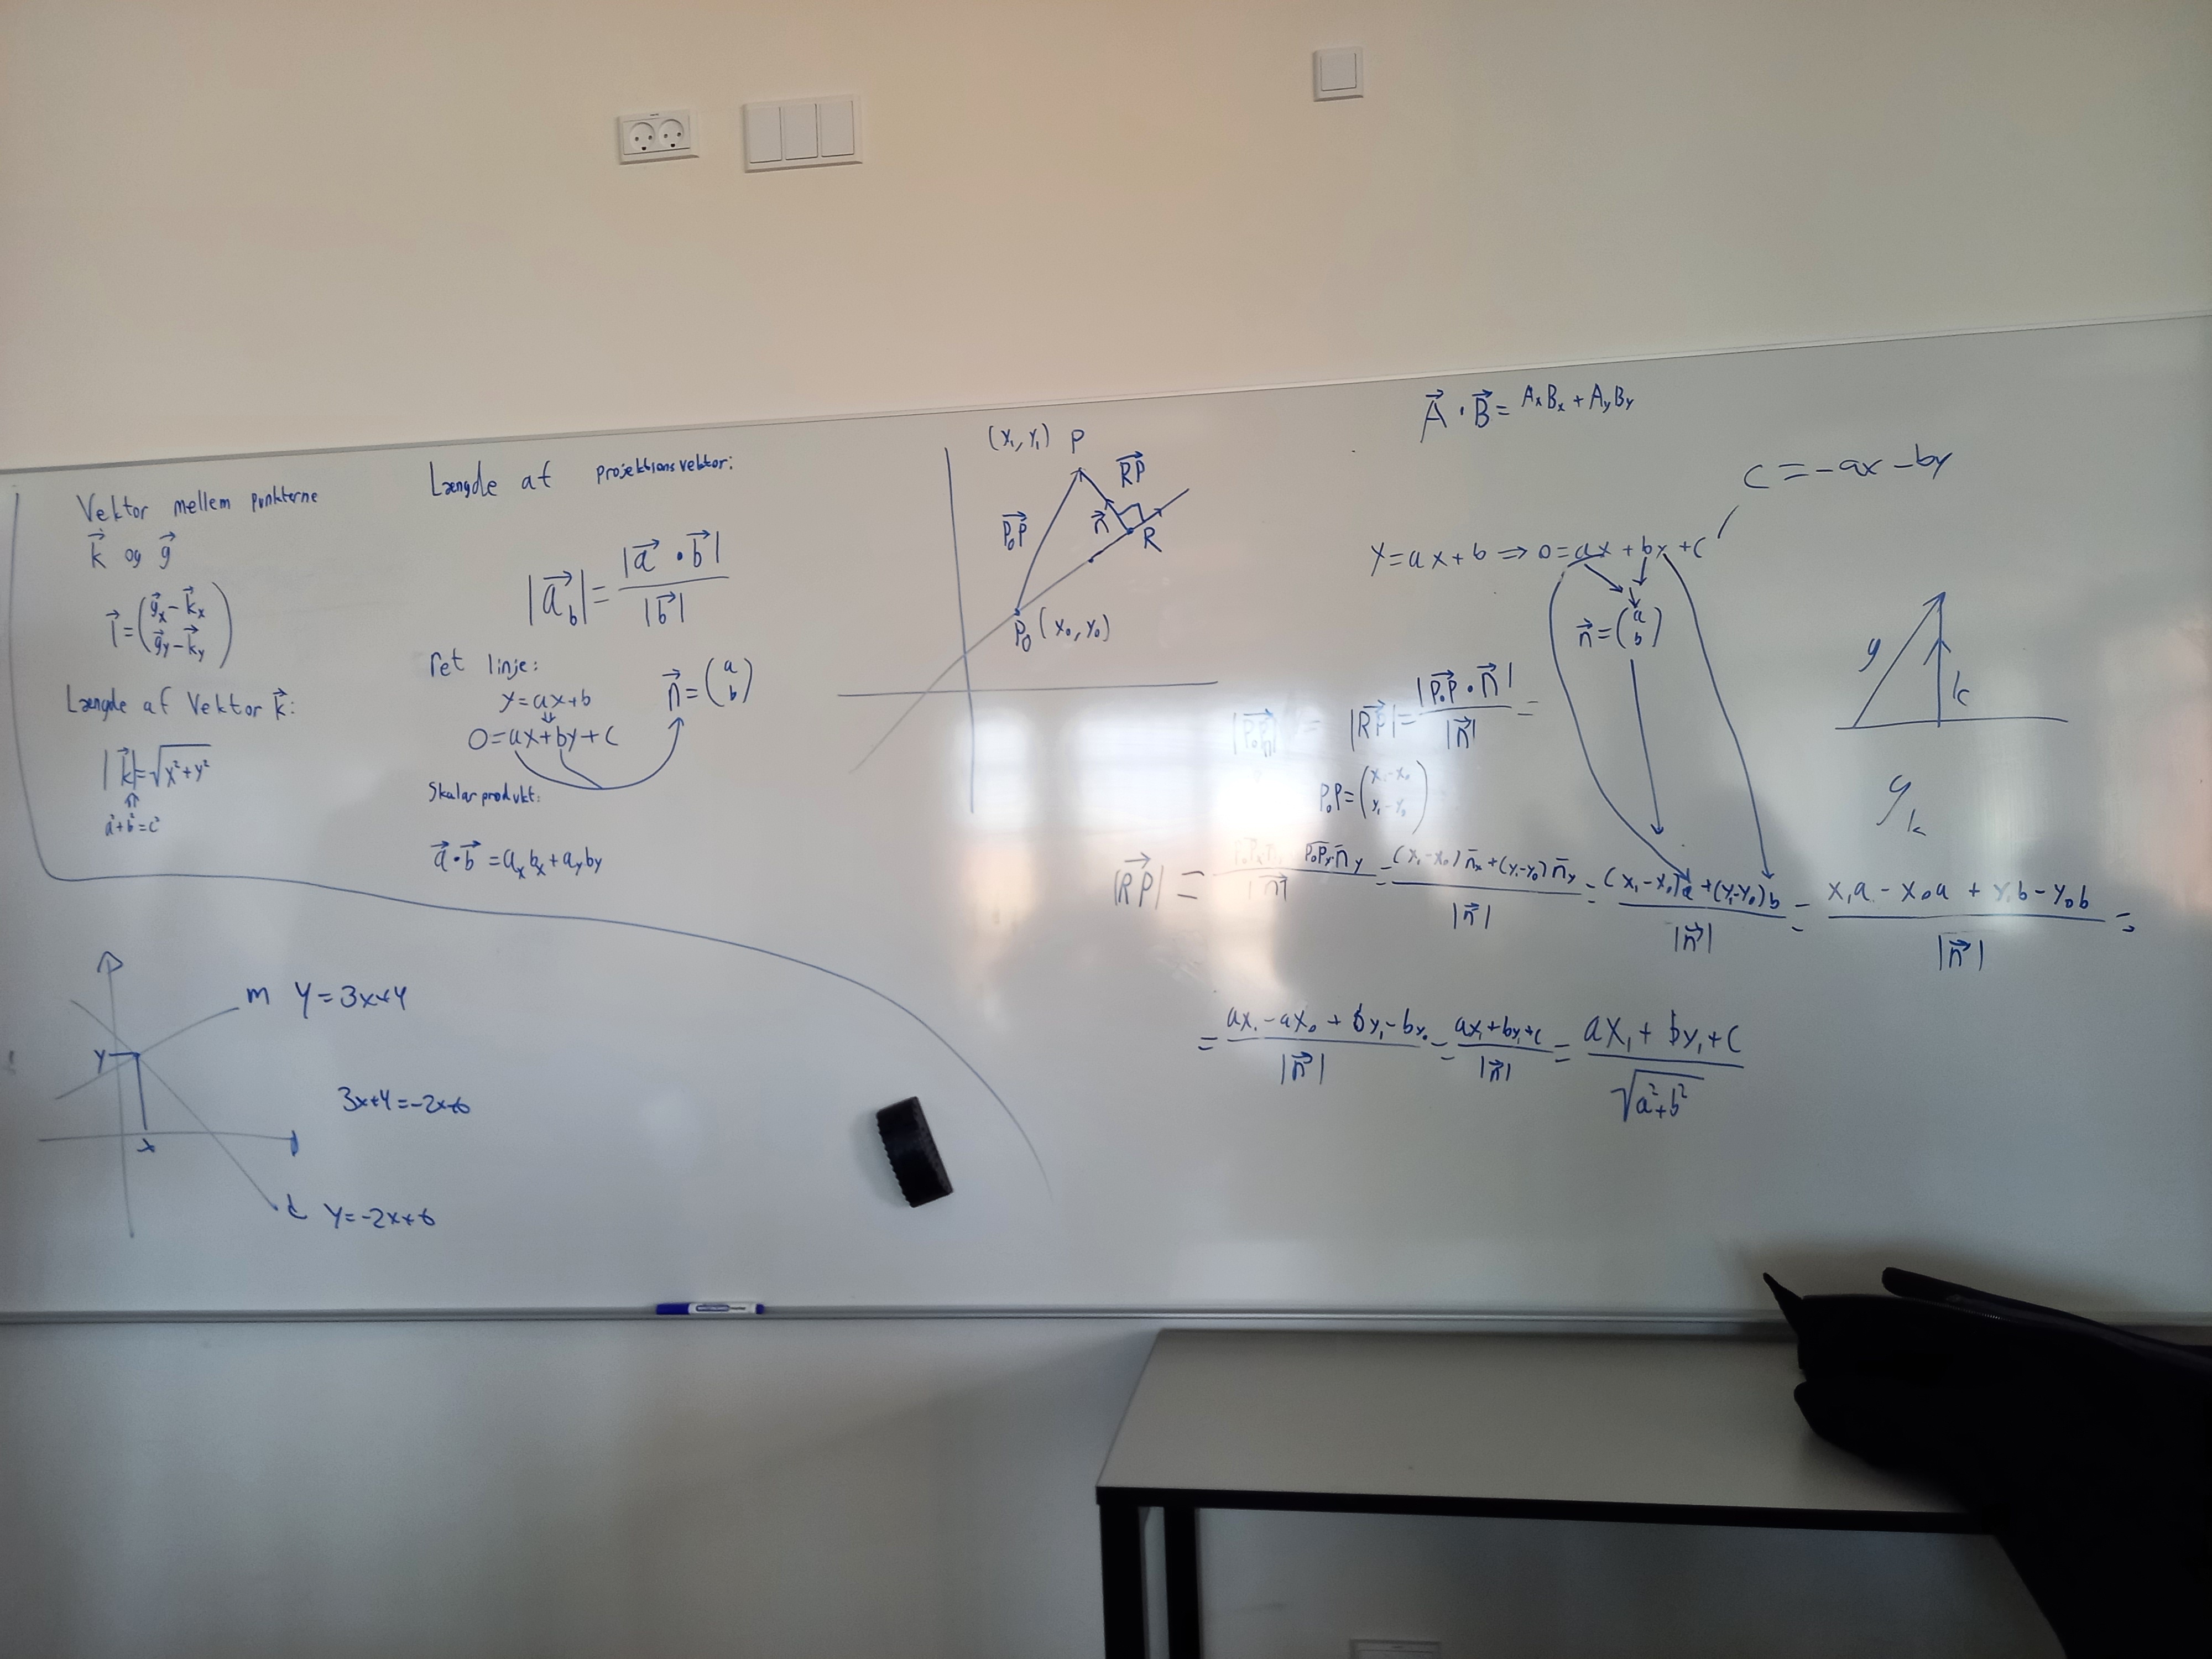 Vektor mellem punkterne
k⃗ og g⃗
l⃗ = (g⃗x − k⃗x
g⃗y − k⃗y)
Længde af Vektor k⃗:
|k⃗| = √x² + y²
⇑
a² + b² = c²
Længde af projektionsvektor:
|a⃗b| = |a⃗ · b⃗| / |b⃗|
ret linje:
y = ax + b
⇓
0 = ax + by + c
n⃗ = (a
b)
Skalarprodukt:
a⃗ · b⃗ = axbx + ayby
m y = 3x + 4
y
x
3x + 4 = −2x + 6
y = −2x + 6
(x₁, y₁) P
R⃗P
P₀P
n⃗
R
P₀ (x₀, y₀)
A⃗ · B⃗ = AxBx + AyBy
c = −ax − by
y = ax + b ⇒ 0 = ax + by + c
n⃗ = (a
b)
g
k
g/k
|RP| = |P₀P · n⃗| / |n⃗| =
P₀P = (x₁ − x₀
y₁ − y₀)
|RP| = P₀Py n̄y / |n⃗| = (x₁ − x₀) n̄x + (y₁ − y₀) n̄y / |n⃗| = (x₁ − x₀)a + (y₁ − y₀)b / |n⃗| = x₁a − x₀a + y₁b − y₀b / |n⃗| =
= ax₁ − ax₀ + by₁ − by₀ / |n⃗| = ax₁ + by₁ + c / |n⃗| = ax₁ + by₁ + c / √a² + b²